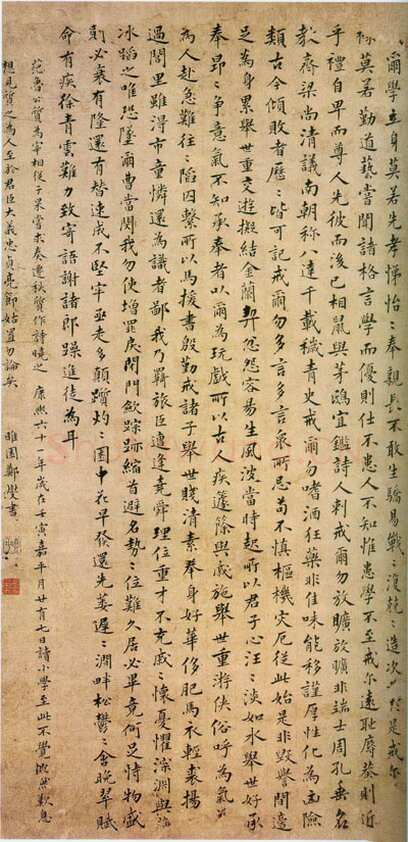 爾學立身莫若先孝悌怡〻奉親長不敢生驕易戰〻復兢〻造次必於是戒尔學干
祿莫若勤道藝嘗聞諸格言學而優則仕不患人不知惟患學不至戒尔遠恥辱恭則近
乎禮自卑而尊人先彼而後己相鼠與茅鴟宜鑑詩人刺戒爾勿放曠放曠非端士周孔垂名
教齊梁尚清議南朝称八達千載穢青史戒爾勿嗜酒狂藥非佳味能移謹厚性化為凶險
類古今傾敗者歷〻皆可記戒爾勿多言多言衆所忌苟不慎樞機災厄從此始是非毀譽間適
足為身累舉世重交遊擬結金蘭契忿怨容易生風波當時起所以君子心汪〻淡如水舉世好承
奉昂〻争意氣不知承奉者以爾為玩戲所以古人疾籧篨與戚施舉世重游俠俗呼為氣義
為人赴急難往〻陷囚繫所以馬援書殷勤戒諸子舉世賤清素奉身好華侈肥馬衣輕裘揚〻
過閭里雖得市童憐還為識者鄙我乃羈旅臣遭逢堯舜理位重才不充戚〻懷憂懼深淵與薄
冰蹈之唯恐墜爾曹當閔我勿使增罪戾閉門斂踪跡縮首避名勢〻位難久居必竟何足恃物盛
則必衰有隆還有替速成不堅牢亟走多顛躓灼〻園中花早發還先萎遲〻澗畔松鬱〻含晚翠賦
命有疾徐青雲難力致寄語謝諸郎躁進徒為耳
范魯公質為宰相從子杲嘗求奏遷秩質作詩曉之 康熙六十一年歲在壬寅嘉平月廿有七日讀小學至此不覺慨然歎息
想見質之為人至於君臣大義忠貞亮節姑置勿論矣 鄭燮書